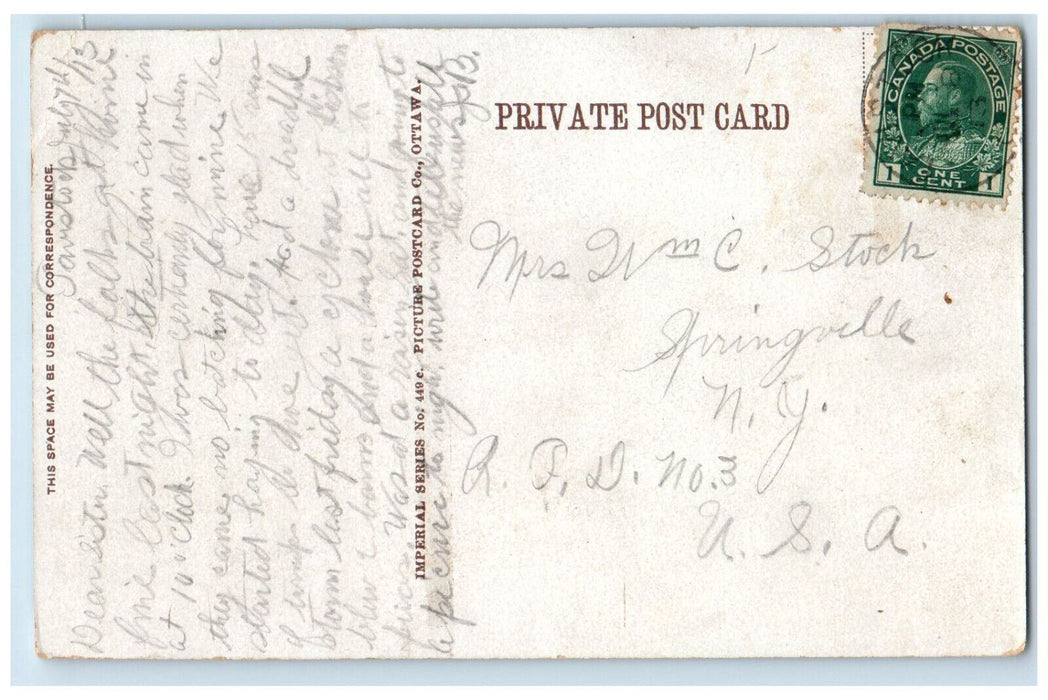 THIS SPACE MAY BE USED FOR CORRESPONDENCE.
July 14/13
Dear sister. Well the folks got home
fine last night the train came in
at 10 o'clock. I was glad when
they came no batching for mine. We
started haying to day, have
to do yet. Had a dreadful
storm last friday a cyclone it
blew 2 barns and a house all
Was at a
a picnic to night, write and
the news. B.
IMPERIAL SERIES No. 449 c. PICTURE POSTCARD Co., OTTAWA.
PRIVATE POST CARD
CANADA POSTAGE
1 ONE CENT 1
Mrs Wm C. Stock
Springville
N. Y.
R. F. D. No. 3
U. S. A.